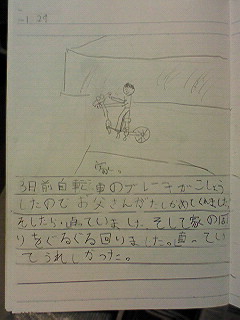 1.29
3日前自転車のブレーキがこしょう
したのでお父さんがたしかめてくれました
そしたら直っていました。そして家の回
りをぐるぐる回りました。直ってい
てうれしかった。